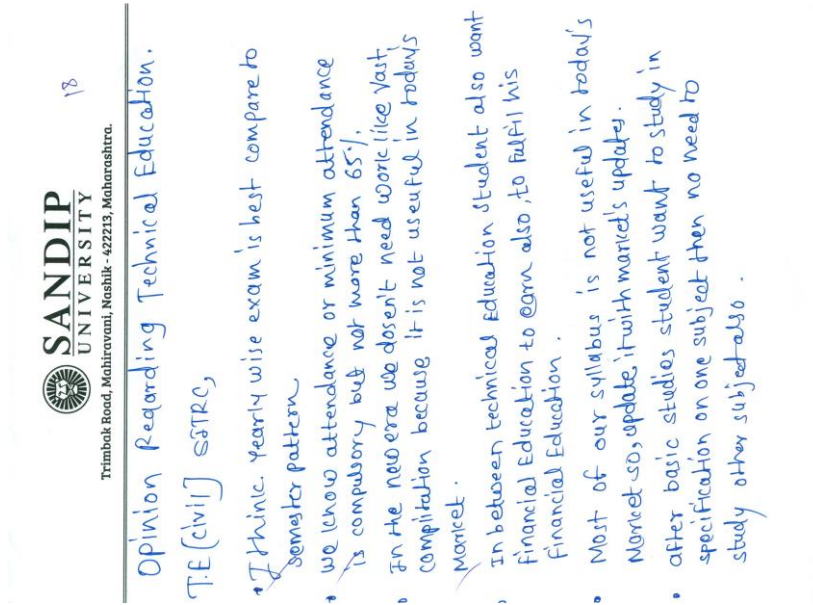 18
SANDIP
UNIVERSITY
Trimbak Road, Mahiravani, Nashik - 422213, Maharashtra.
Opinion Regarding Technical Education.
T.E (civil) SITRC,
• I think Yearly wise exam is best compare to
semester pattern
• we know attendance or minimum attendance
is compulsory but not more than 65%.
• In the new era we dosen't need work like vast
complitation because it is not useuful in today's
Market.
• In between technical Education student also want
financial Education to earn also, to fulfil his
financial Education.
• Most of our syllabus is not useful in today's
Market so, update it with market's updates.
• after basic studies student want to study in
specification on one subject then no need to
study other subject also.